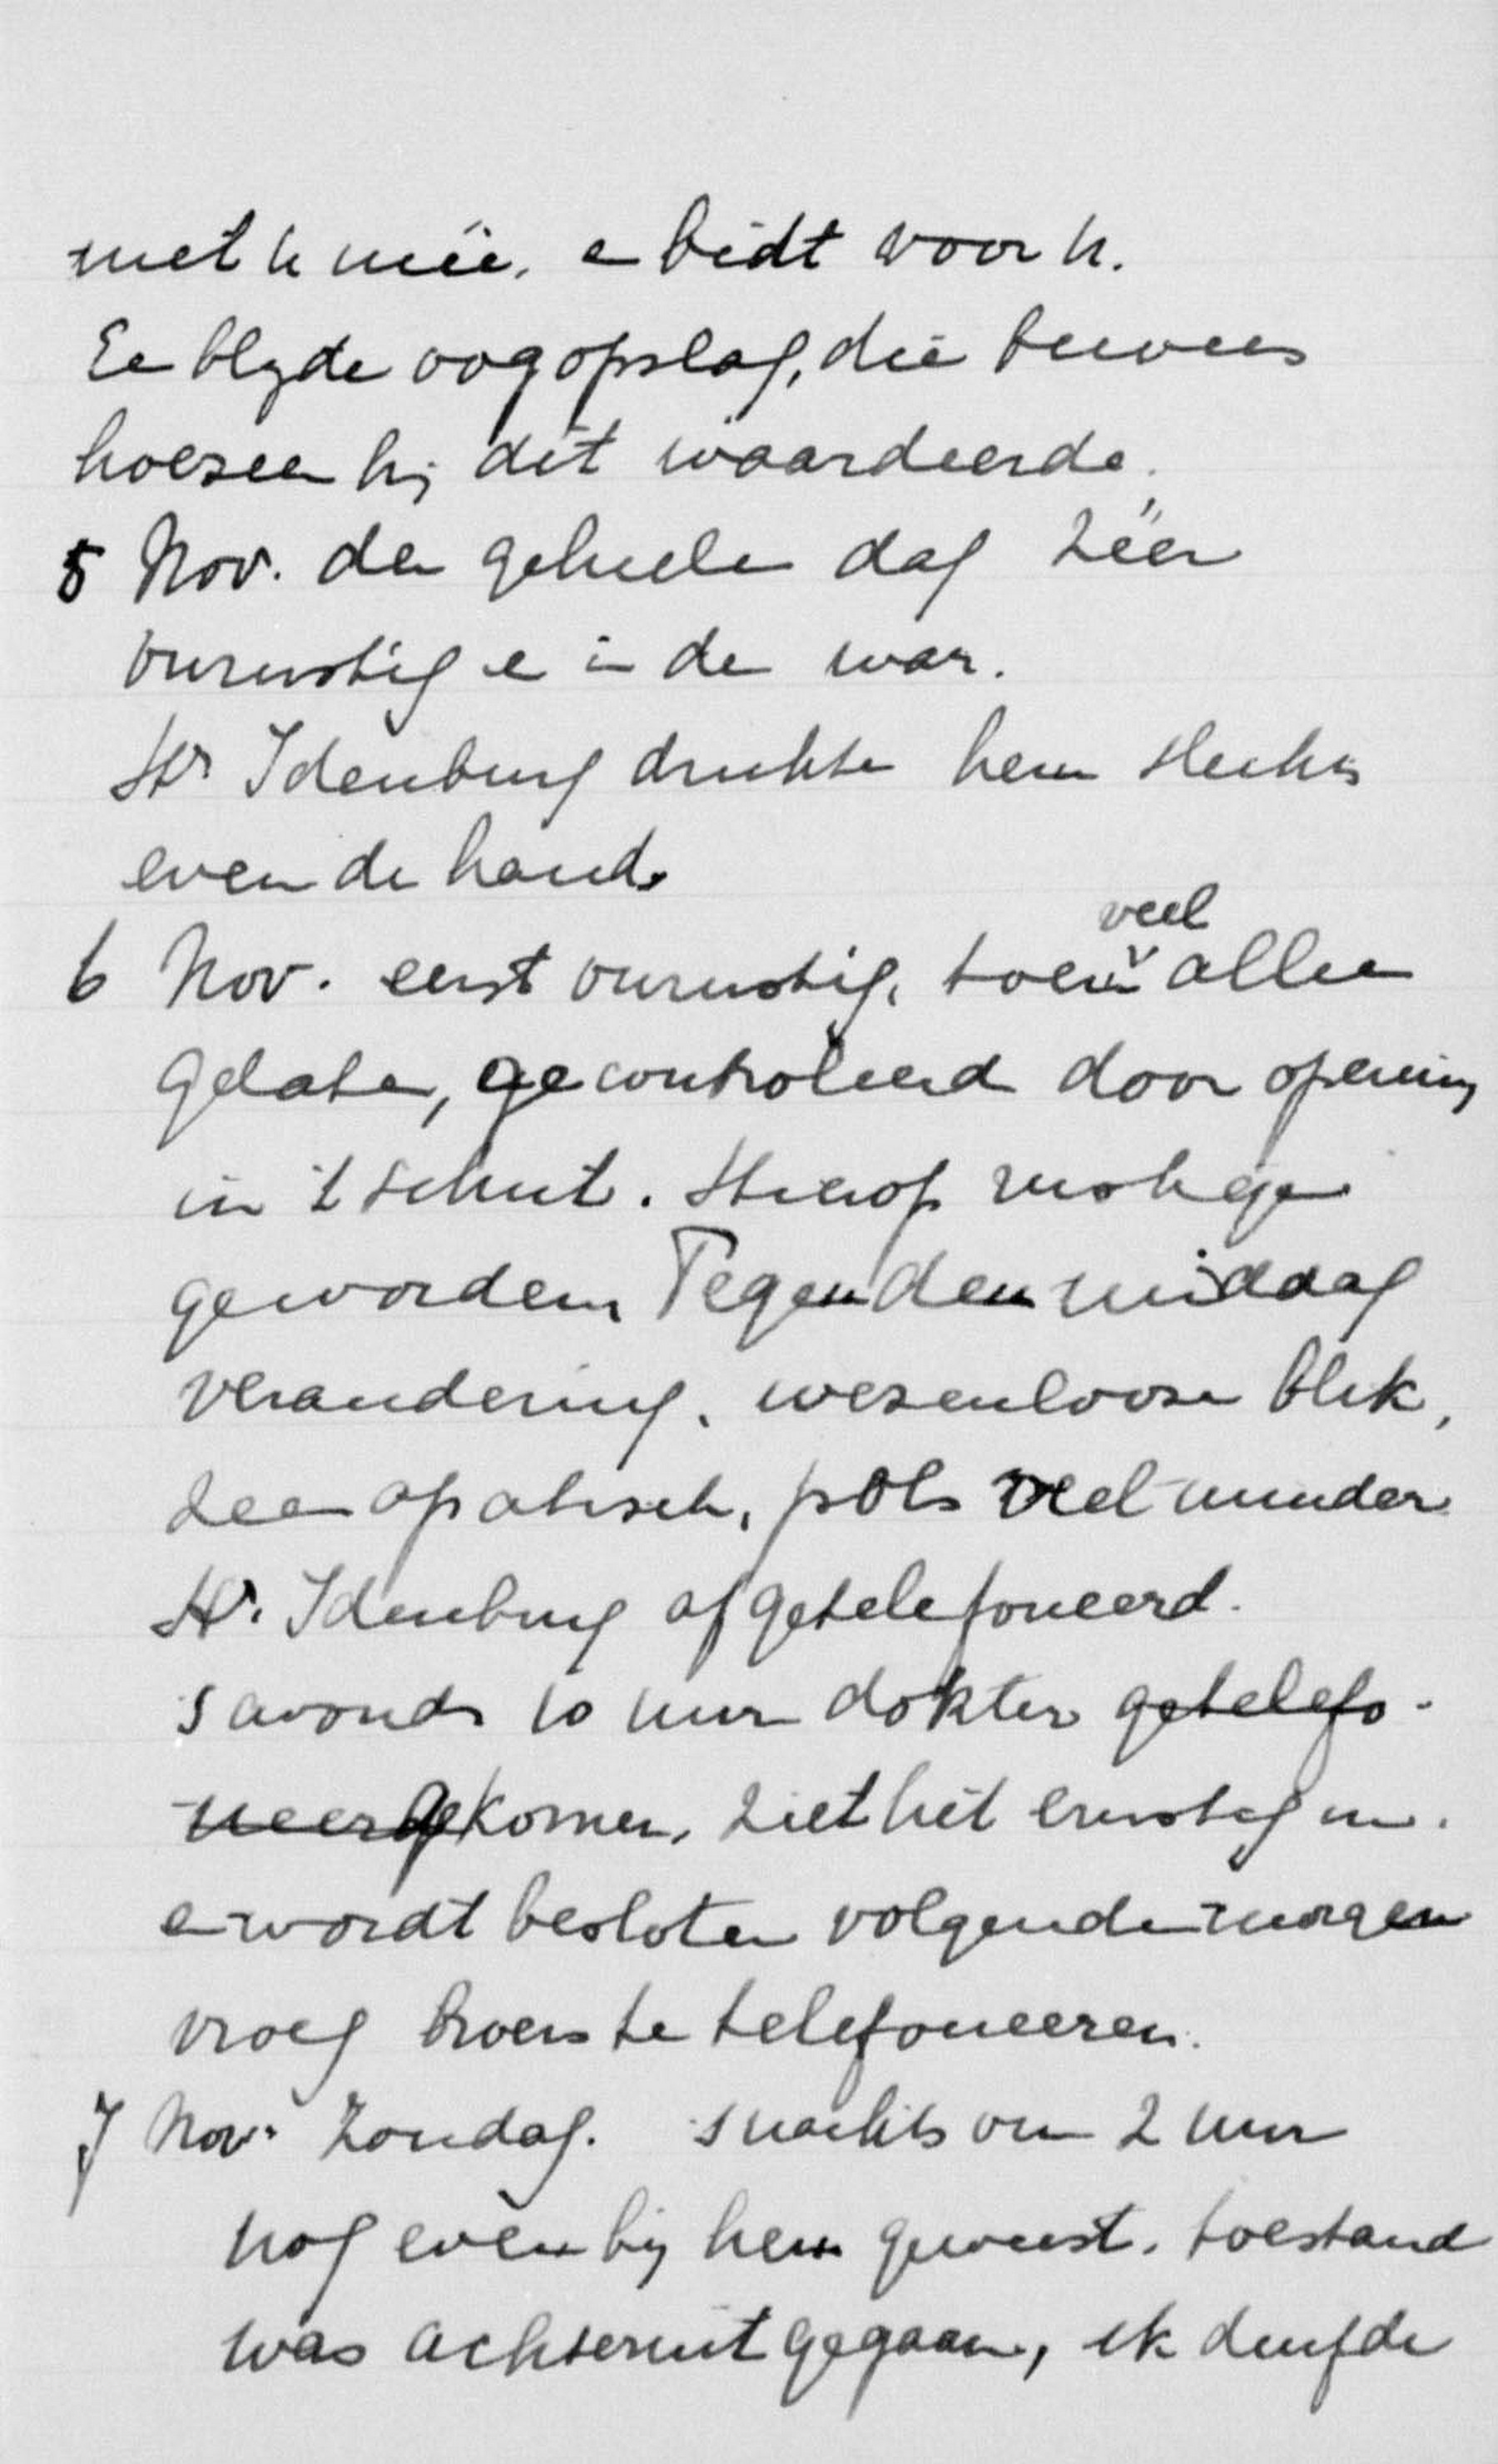 met u meê, e bidt voor u.
Ee blyde oogopslag, die bewees
hoezeer hij dit waardeerde.
5 Nov. den geheelen dag zéér
onrustig e in de war.
Hr Idenburg drukte hem slechts
even de hand.
6 Nov. eerst onrustig, toen veel alleen
gelaten, gecontroleerd door opening
in 't schut. Hierop rustiger
geworden, Tegen den middag
verandering, wezenlooze blik,
zeer apatisch, pols veel minder
Hr. Idenburg afgetelefoneerd.
's avonds 10 uur dokter getelefo-
neerd gekomen, ziet het ernstig in.
e wordt besloten volgende morgen
vroeg broers te telefoneeren.
7 Nov. Zondag. 's nachts om 2 uur
nog even bij hem geweest, toestand
was achteruit gegaan, ik durfde